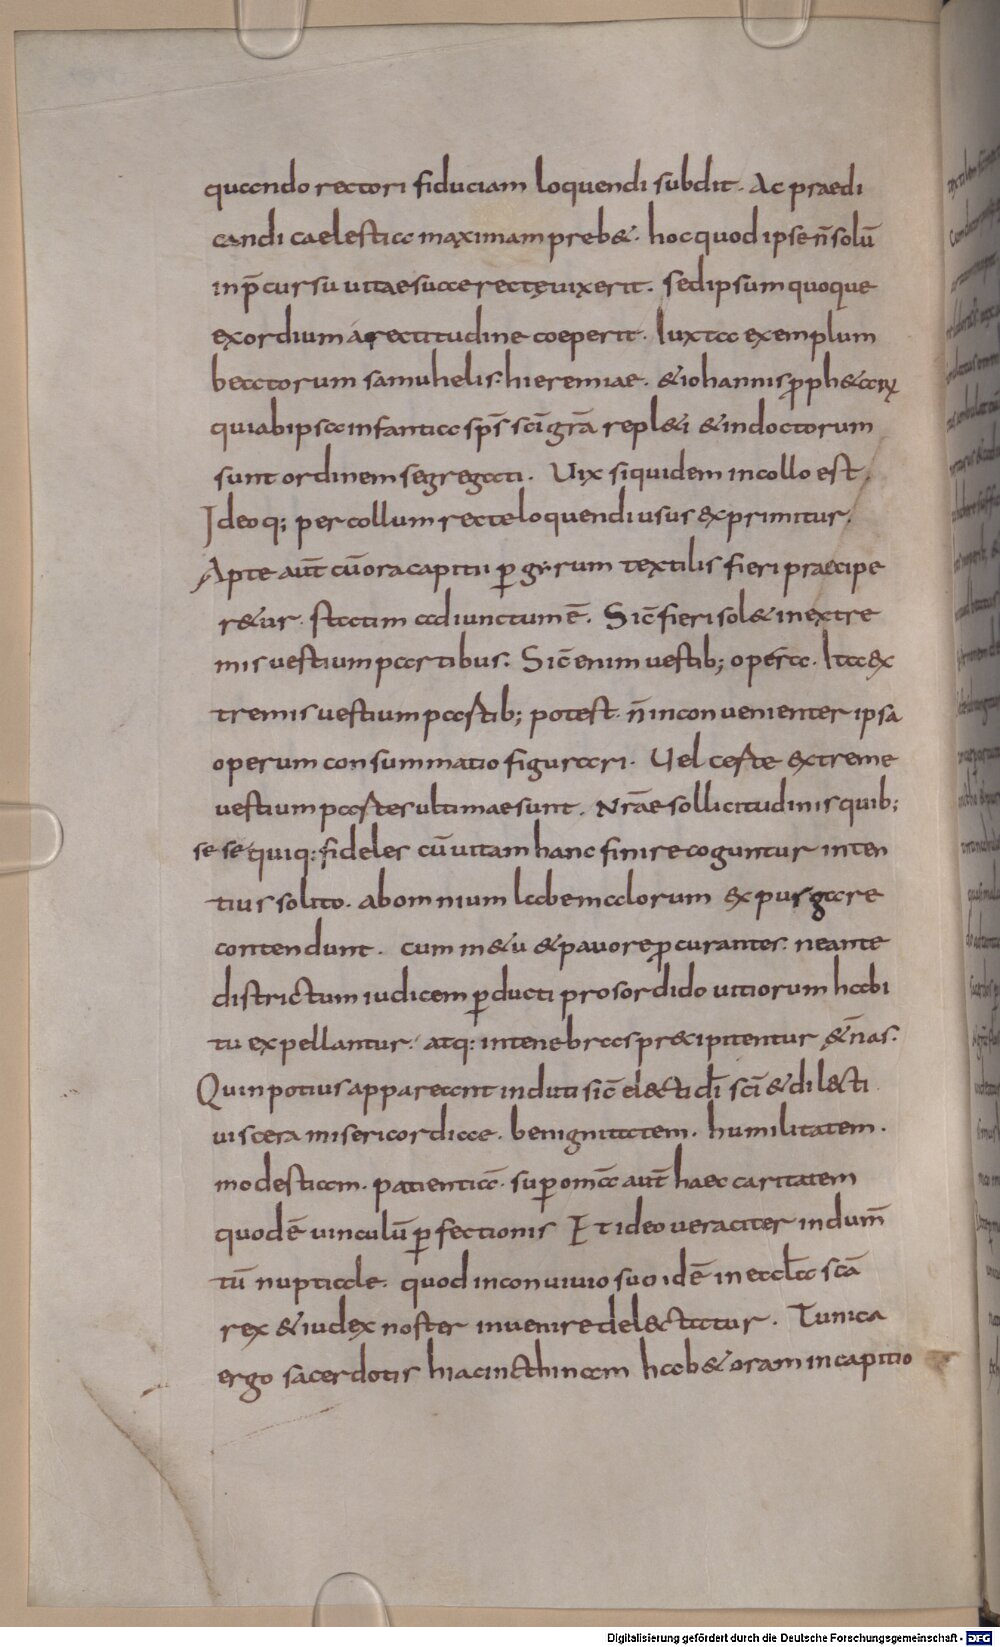 quando rectori fiduciam loquendi subdit. Ac praedi
candi caelestia maximam preb&. hoc quod ipse n̄ solū
in p̄cursu uitae suae recte uixerit. sed ipsum quoque
exordium a rectitudine coeperit. Iuxta exemplum
beatorum samuhelis. hieremiae. & iohannis pph&arų
qui ab ipsa infantia sps̄ scī grā repl&i & in doctorum
sunt ordinem segregati. Vix siquidem in collo est.
Ideoq; per collum recte loquendi usus exprimitur.
Apte aut̄ cū ora capitii ꝑ girum textilis fieri praecipe
r&ur. statim adiunctum ē. Sic̄ fieri sol& in extre
mis uestium partibus. Sic̄ enim uestib; opera. Ita ex
tremis uestium partib; potest. n̄ inconuenienter ipsa
operum consummatio figurari. Vel certe extreme
uestium partes ultimae sunt. Nrāe sollicitudinis quib;
se se quiq: fideles cū uitam hanc finire coguntur inten
tius solito. ab omnium labe malorum expurgare
contendunt. cum m&u & pauore pcurantes. ne ante
districtum iudicem ꝑducti pro sordido uitiorum habi
tu expellantur. atq: in tenebras precipitentur &n̄as.
Quin potius appareant induti sic̄ electi dī scī & dilecti
uiscera misericordiae. benignitatem. humilitatem.
modestiam. patientiā. suꝑ omā aut̄ haec caritatem
quod ē uinculū ꝑfectionis Et ideo ueraciter indum̄
tū nuptiale. quod in conuiuio suo id ē in eccl̄a scā
rex & iudex noster inuenire delectatur. Tunica
ergo sacerdotis hiacincthinam hab& oram in capitio